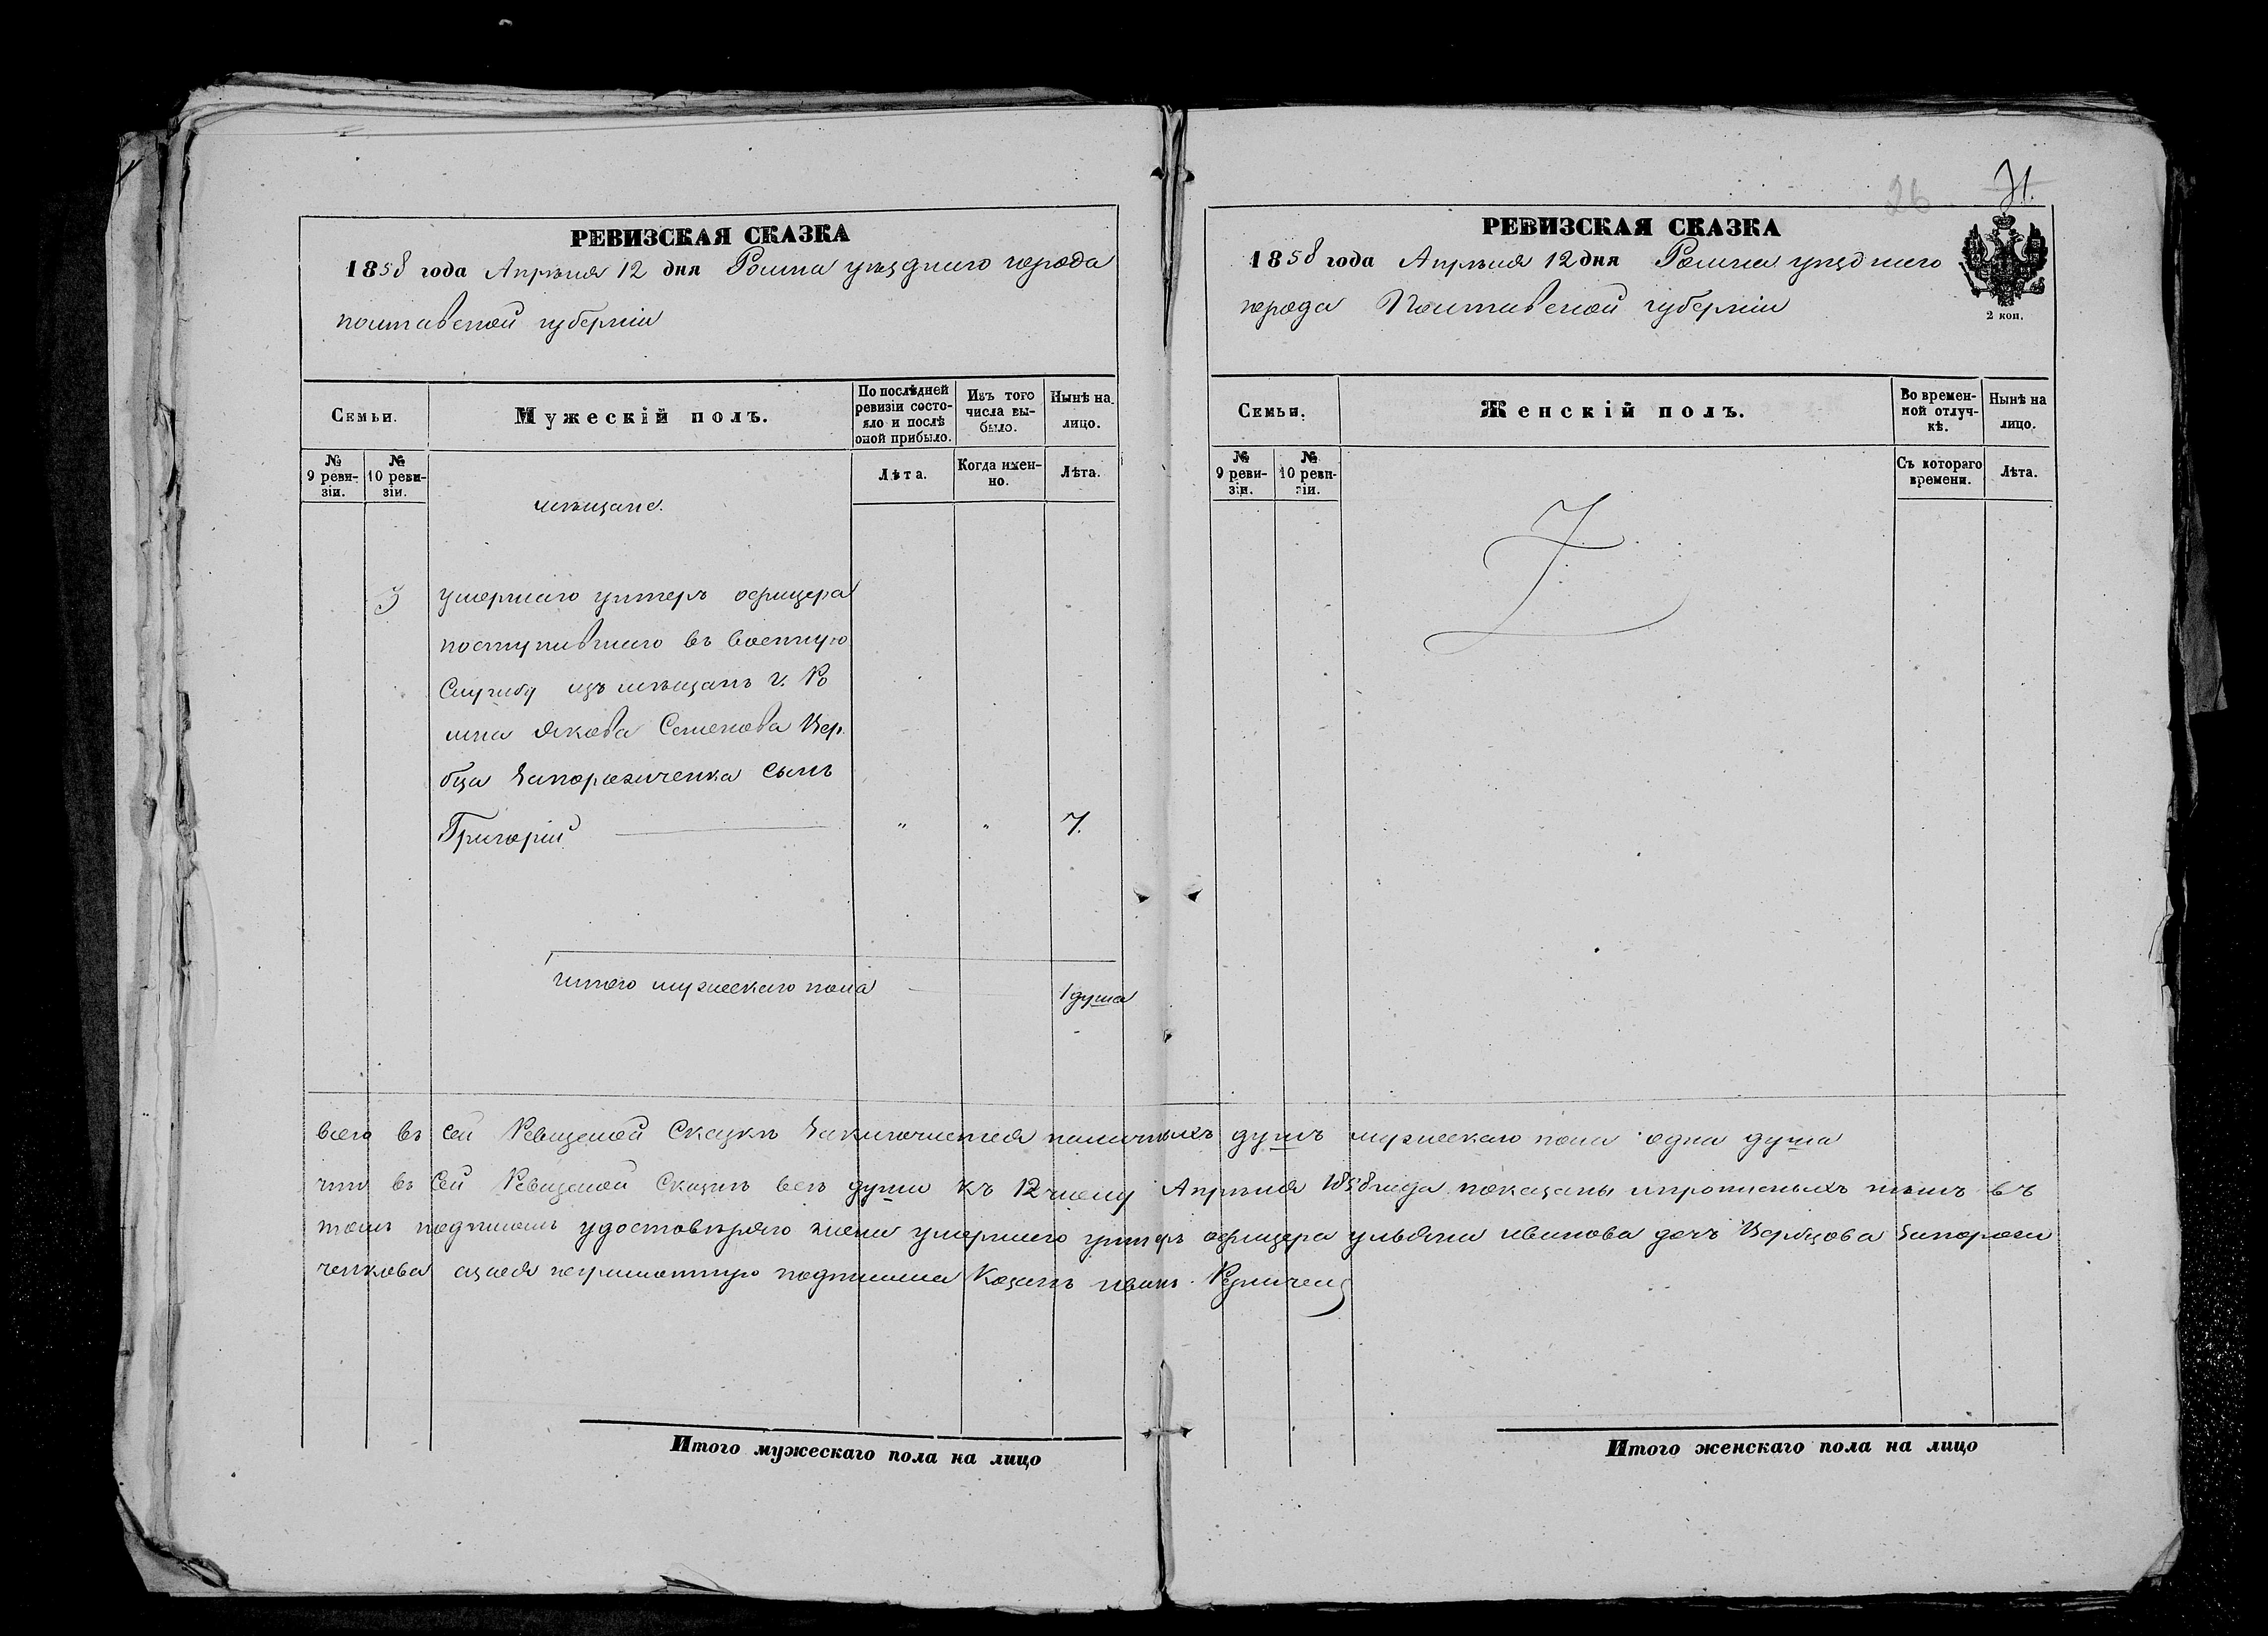 РЕВИЗСКАЯ СКАЗКА
1858 года Апрѣля 12 дня Ромна уѣзднаго города
полтавской губерніи
Семьи.
Мужескій полъ.
По послѣдней ревизіи состояло и послѣ оной прибыло.
Изъ того числа выбыло.
Нынѣ на лицо.
№ 9 ревизіи.
№ 10 ревизіи.
Лѣта.
Когда именно.
Лѣта.
мѣщане.
3 умершаго унтеръ офицера
поступившаго въ военную
Службу изъ мѣщанъ г. Ро
мна Якова Семенова Вер
бца Запорожченка сынъ
Григорій " " 7.
Итого мужескаго пола 1 душа
26 31.
РЕВИЗСКАЯ СКАЗКА
1858 года Апрѣля 12 дня Ромна уѣзднаго
города Полтавской губерніи
2 коп.
Семьи.
Женскій полъ.
Во временной отлучкѣ.
Нынѣ на лицо.
№ 9 ревизіи.
№ 10 ревизіи.
Съ котораго времени.
Лѣта.
всего въ сей Ревизской Сказкѣ Заключается наличныхъ душъ мужескаго пола одна душа
что въ Сей Ревизской Сказкѣ всѣ души къ 12 Апрѣля 1858 года показаны и прописныхъ нѣтъ въ
томъ подписомъ удостовѣряю жена умершаго унтеръ офицера ульяна иванова дочъ Вербцова Запорож
ченкова неграмотную Козакъ иванъ
Итого мужескаго пола на лицо
Итого женскаго пола на лицо